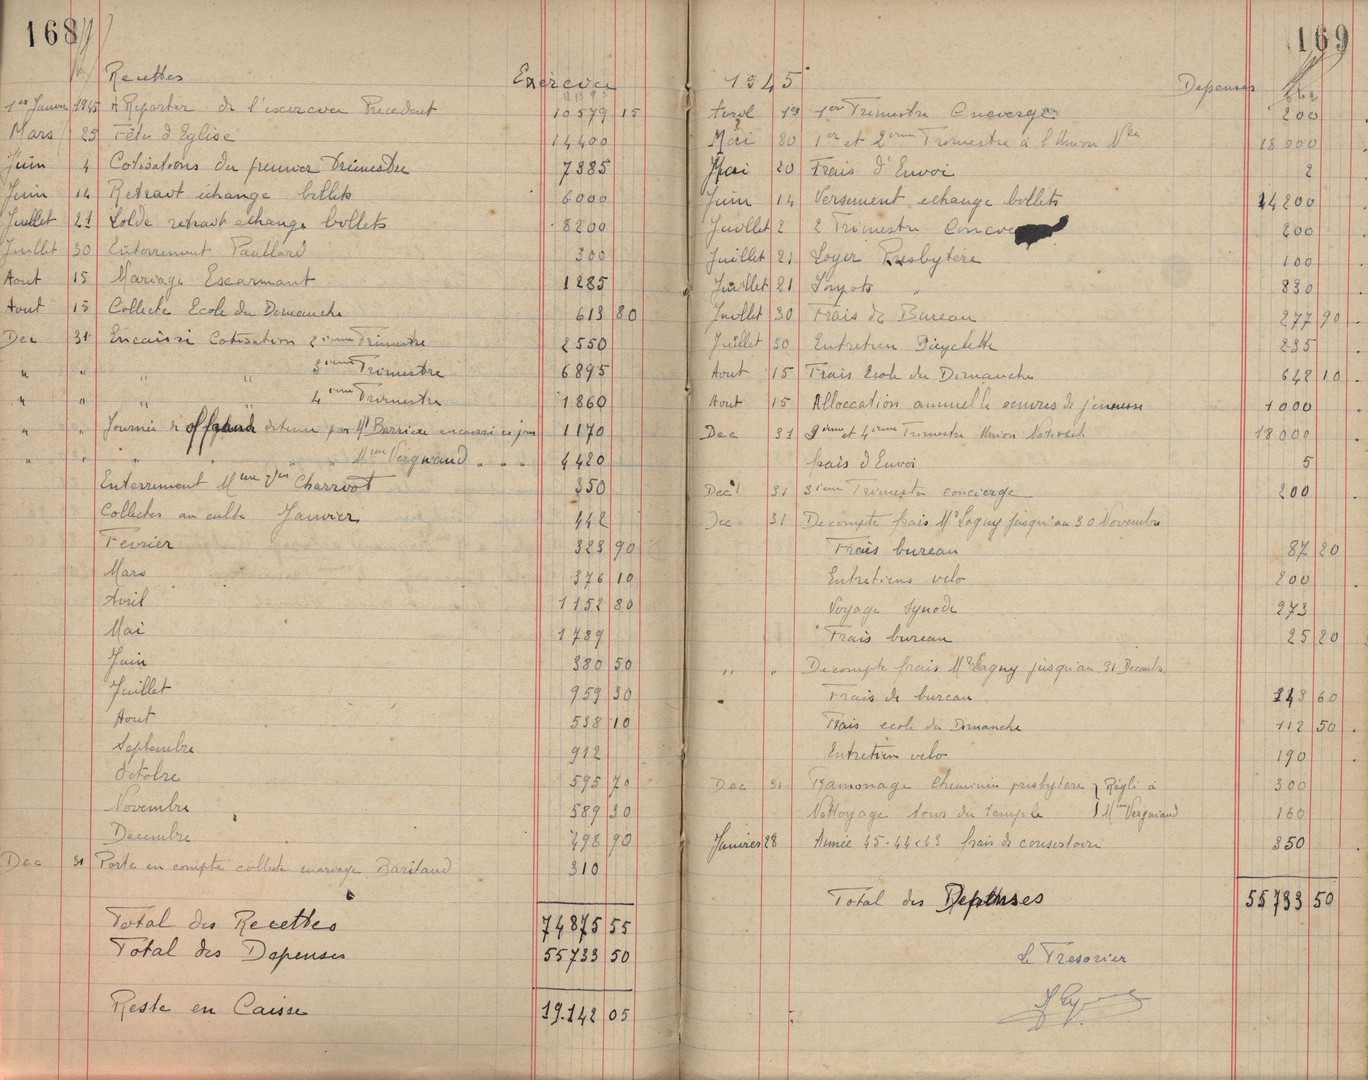 168
Recettes Exercice
1er Janvier 1945 A Reporter de l'exercice Precedent 10579 15
Mars 25 Fête d'Eglise 14400
Juin 4 Cotisations du premier Trimestre 7385
Juin 14 Retrait échange billets 6000
Juillet 21 Solde retrait echange billets 8200
Juillet 30 Enterrement Paillard 300
Aout 15 Mariage Escarmant 1285
Aout 15 Collecte Ecole du Dimanche 613 80
Dec 31 Encaissé Cotisation 2ieme Trimestre 2550
" " " " 3ieme Trimestre 6895
" " " " 4ieme Trimestre 1860
" " Journée d' offrande detenue par Mr Barriere encaissé ce jour 1170
" " " " " " Mme Vergniaud " " " 4420
Enterrement Mme Charriot 350
Collectes au culte Janvier 442
Fevrier 323 90
Mars 376 10
Avril 1152 80
Mai 1789
Juin 380 50
Juillet 959 30
Aout 538 10
Septembre 912
Octobre 595 70
Novembre 589 30
Decembre 498 90
Dec 31 Porte en compte collecte mariage Baritaud 310
Total des Recettes 74875 55
Total des Depenses 55733 50
Reste en Caisse 19.142 05
169
1945 Depenses
Avril 19 1er Trimestre Concierge 200
Mai 20 1er et 2ieme Trimestre à l'Union Nle 18000
Mai 20 Frais d'Envoi 2
Juin 14 Versement echange billets 14200
Juillet 2 2 Trimestre 200
Juillet 21 Loyer Presbytère 100
Juillet 21 Impots " 830
Juillet 30 Frais de Bureau 277 90
Juillet 30 Entretien Bicyclette 235
Aout 15 Frais Ecole du Dimanche 642 10
Aout 15 Alloccation annuelle oeuvres de jeunesse 1000
Dec 31 3ieme et 4ieme Trimestre Union Nationale 18000
frais d'Envoi 5
Dec 31 3ieme Trimestre concierge 200
Dec 31 Decompte frais Mr Lagny jusqu'au 30 Novembre
Frais bureau 87 20
Entretiens velo 200
Voyage Synode 273
Frais bureau 25 20
" " Decompte frais Mr Lagny jusqu'au 31 Decembre
Frais de bureau 243 60
Frais ecole du Dimanche 112 50
Entretien velo 190
Dec 31 Ramonage cheminées presbytere } Réglé à 300
Nettoyage du temple } Mme Vergniaud 160
Janvier 28 Année 45-44-43 frais de consistoire 350
Total des Depenses 55733 50
Le Tresorier